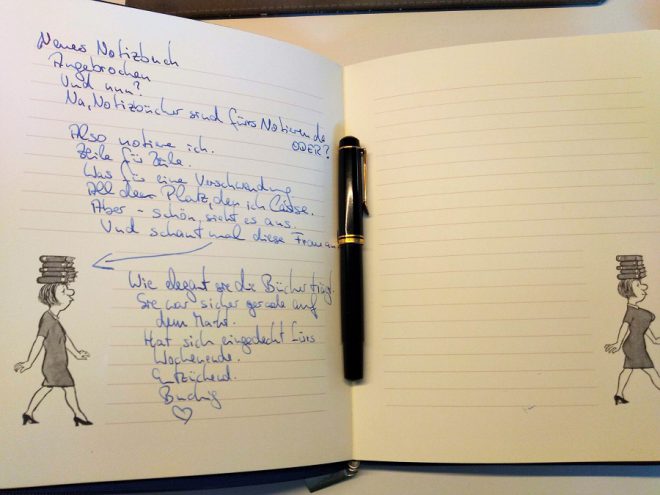 Neues Notizbuch
Angebrochen
Und nun?
Na, Notizbücher sind fürs Notieren da
ODER?
Also notiere ich.
Zeile für Zeile.
Was für eine Verschwendung
All dem Platz, den ich lasse.
Aber - schön, sieht es aus.
Und schaut mal diese Frau an
Wie elegant sie die Bücher trägt.
Sie war sicher gerade auf
dem Markt.
Hat sich eingedeckt fürs
Wochenende.
Entzückend.
Buchig
♡